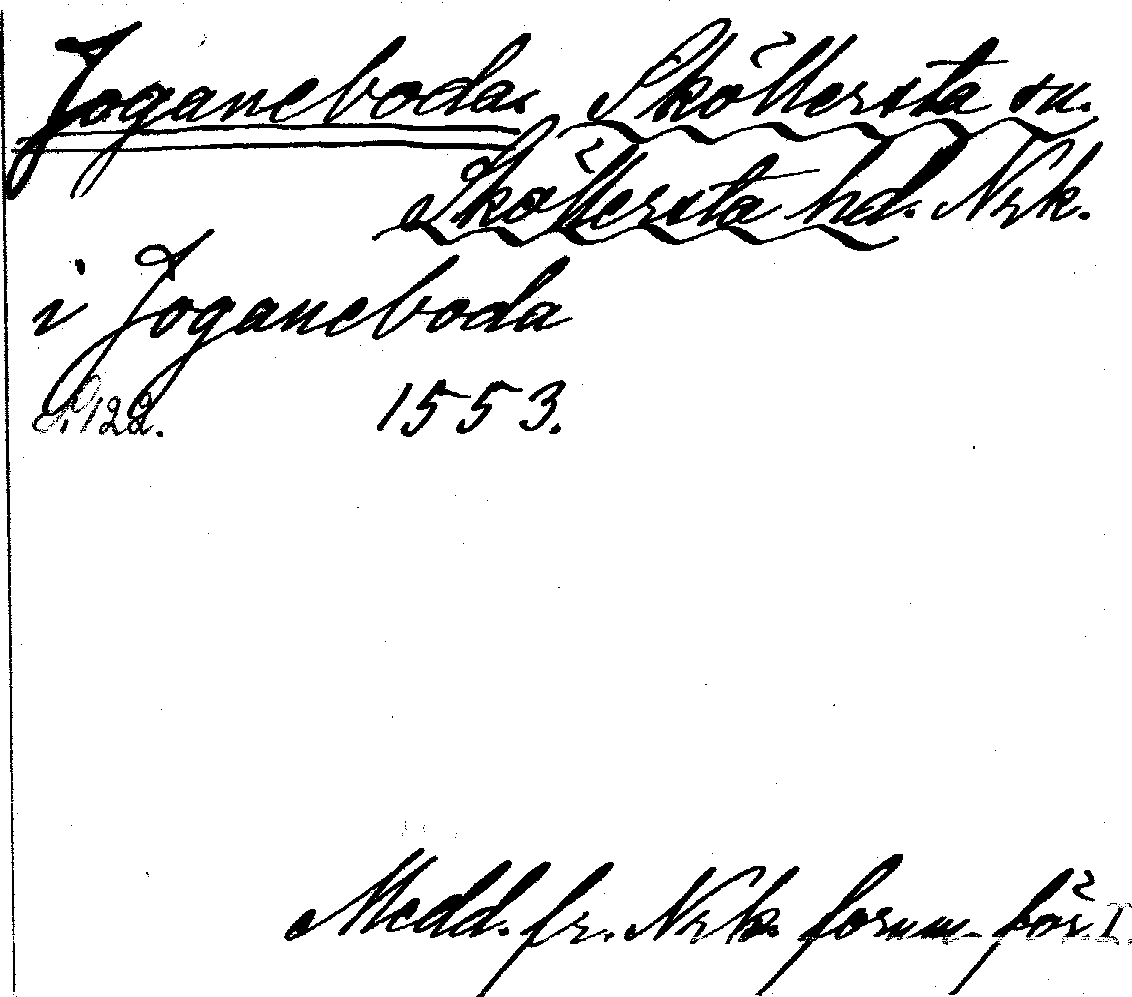 Joganeboda. Sköllersta sn.
Sköllersta hd. Nrk.
i Joganeboda
s. 122. 1553.
Medd. fr. Nrk. fornm. för. I.